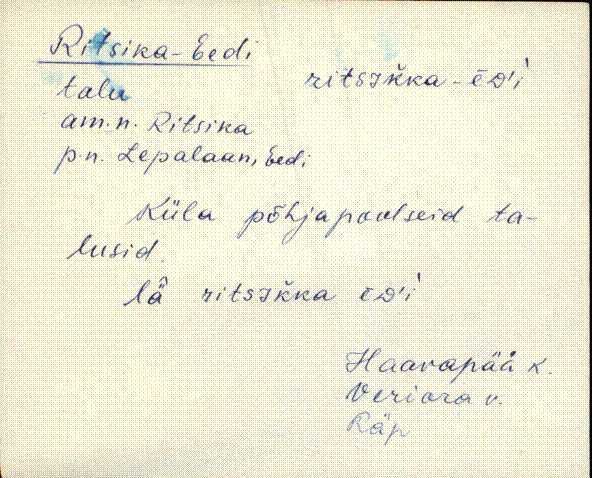 Ritsika-Eedi
ritsIk̆ka-ēD'i
talu
am.n. Ritsika
p.n. Lepalaan, Eedi
Küla põhjapoolseid ta-
lusid.
lǟ ritsIk̆ka ēD'i
Haavapää k.
Veriora v.
Räp